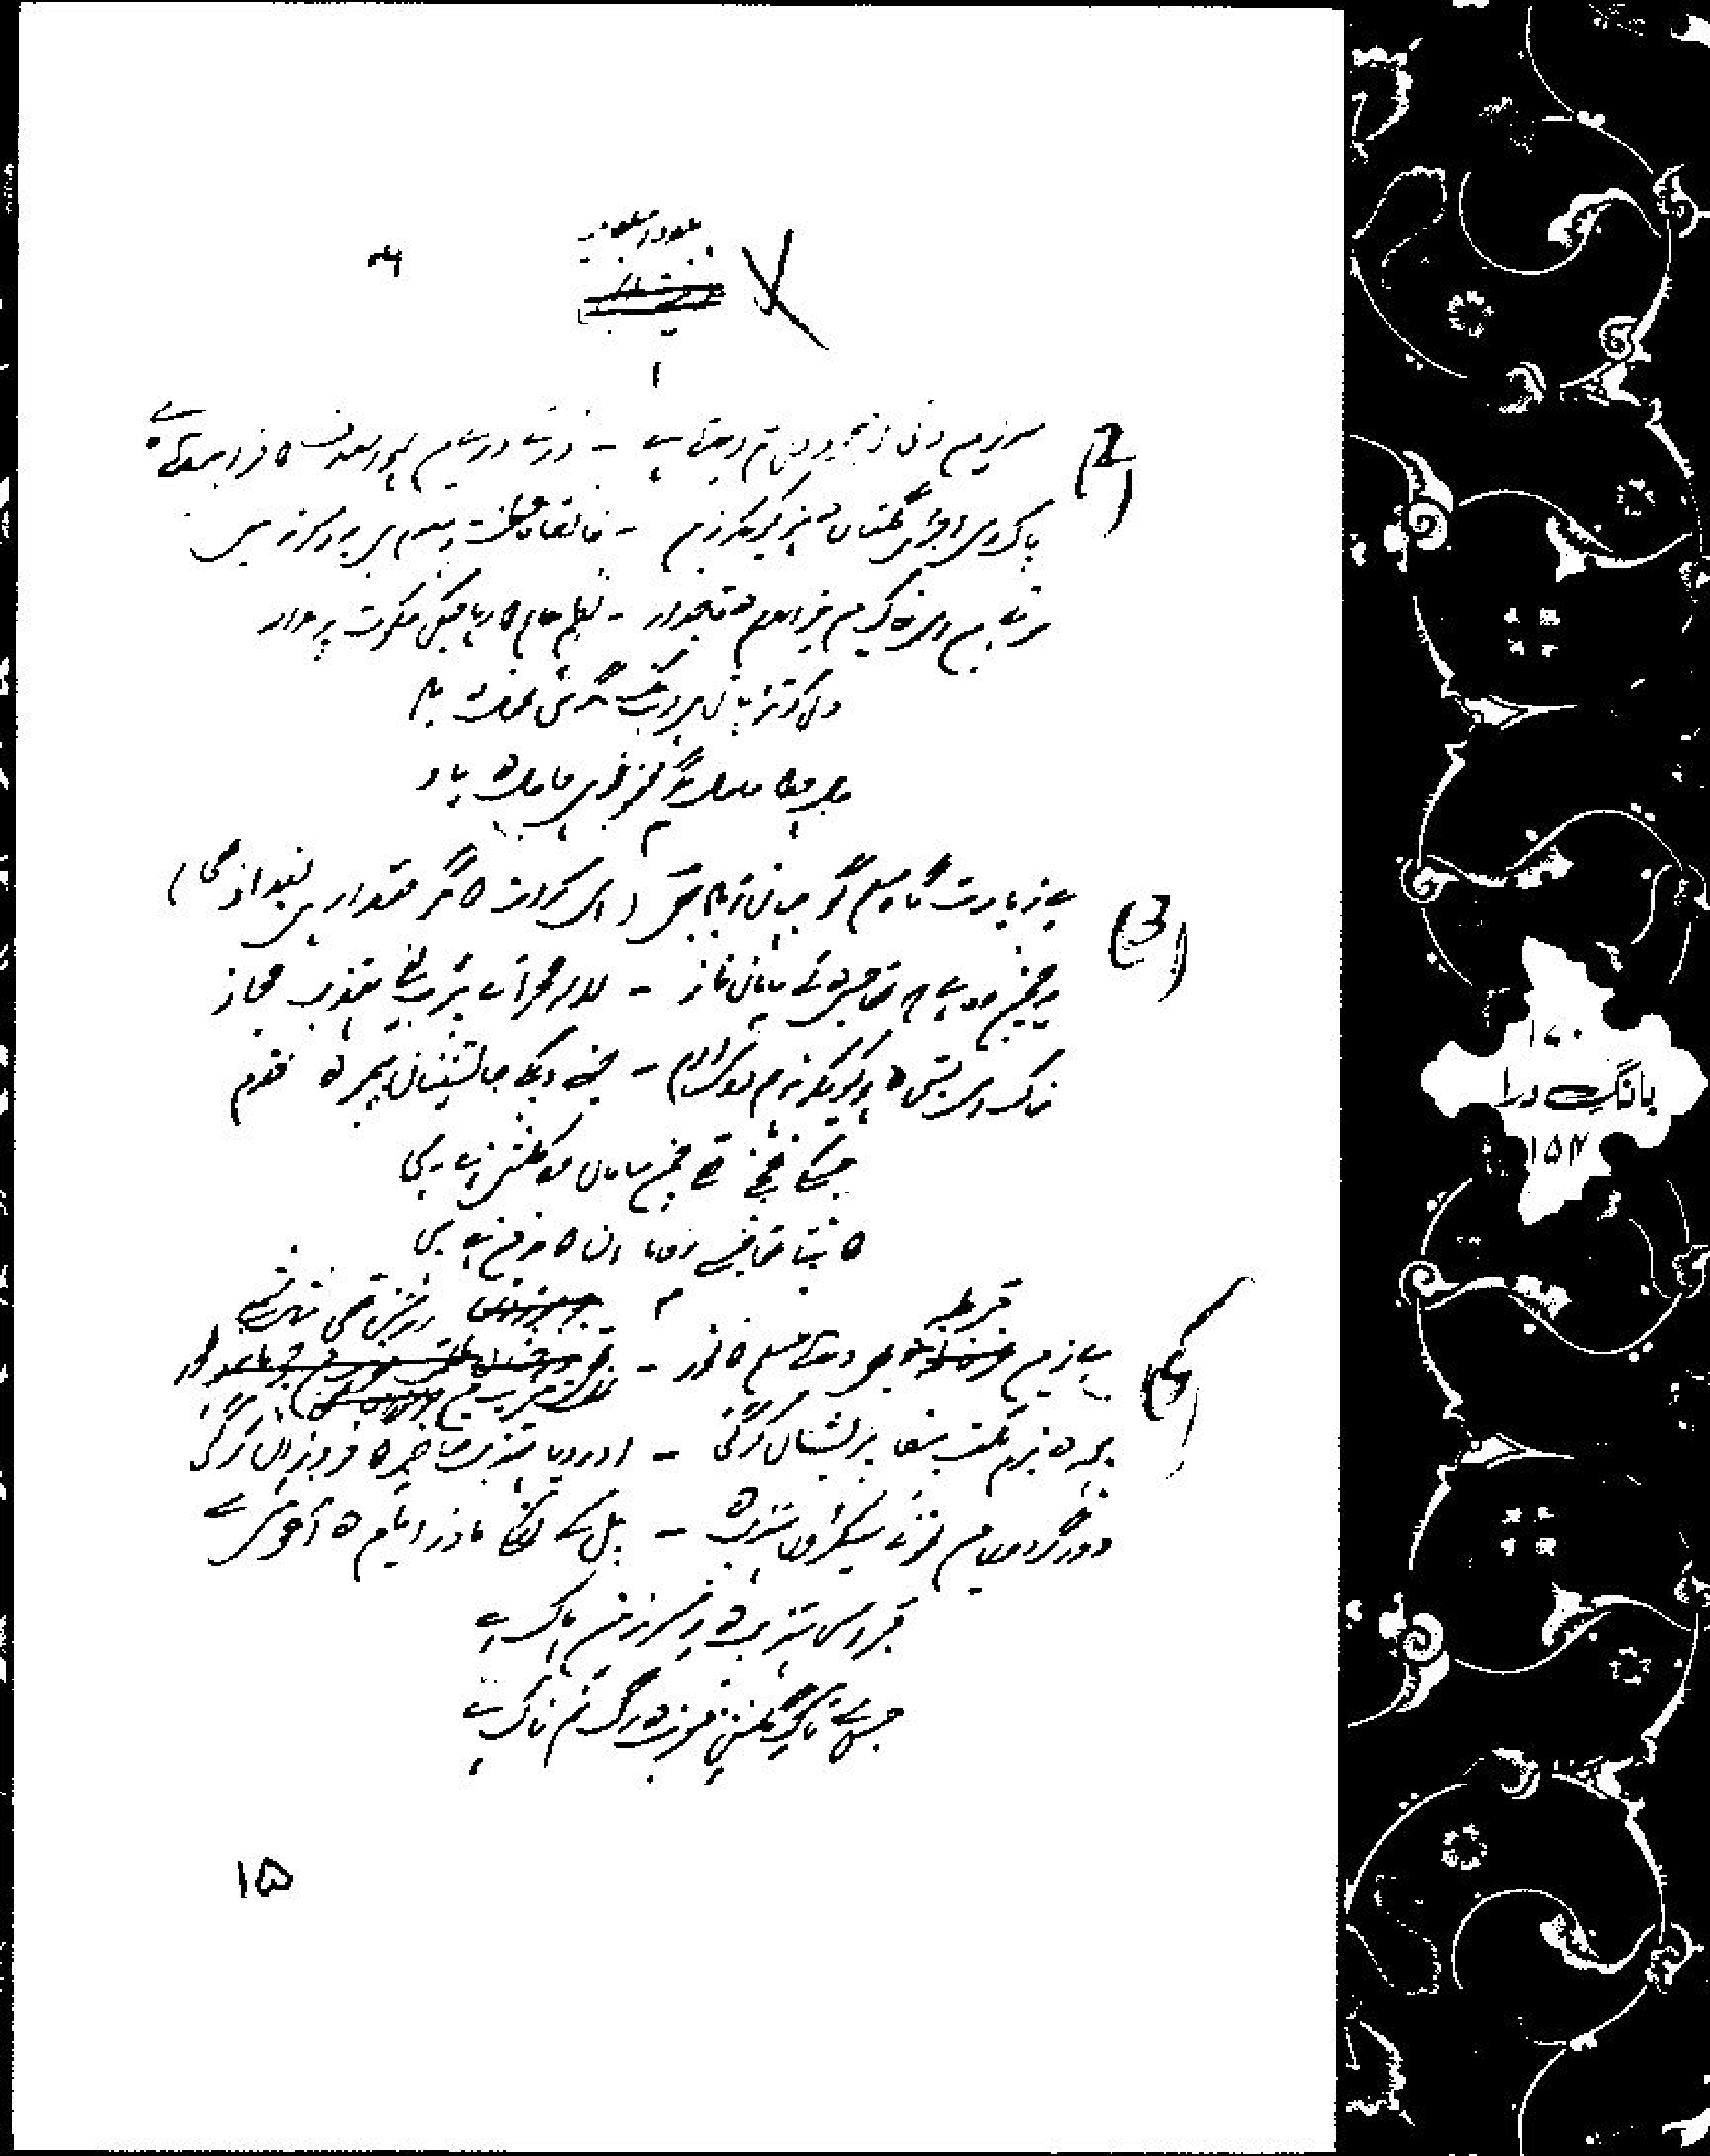 بلاد اسلامیہ
۱
(2) سرزمیں دلی کی مسجود دل غم دیدہ ہے - ذرے ذرے میں لہو اسلاف کا خوابیدہ ہے
پاک اس اجڑے گلستاں کی نہ ہو کیونکر زمیں - خانقاہ عظمت اسلام ہے یہ سرزمیں
سوتے ہیں اس خاک میں خیر الامم کے تاجدار - نظم عالم کا رہا جن کی حکومت پر مدار
دل کو تڑپاتی ہے اب تک گرمی محفل کی یاد
جل چکا حاصل مگر محفوظ ہے حاصل کی یاد
۲
(3) ہے زیارت گاہ مسلم گو جہان آباد بھی (اس کرامت کا مگر حقدار ہے بغداد بھی)
یہ چمن وہ ہے کہ تھا جس کے لیے سامان ناز - لالۂ صحرا جسے کہتے ہیں تہذیب حجاز
خاک اس بستی کی ہو کیونکر نہ ہمدوش ارم - جس نے دیکھے جانشینان پیمبر کے قدم
جس کے غنچے تھے چمن ساماں وہ گلشن ہے یہی
کانپتا تھا جن سے روما ان کا مدفن ہے یہی
۳
(4) ہے زمین قرطبہ بھی دیدۂ مسلم کا نور - ظلمت مغرب میں جو روشن تھی مثل شمع طور
بجھ کے بزم ملت بیضا پریشاں کر گئی - اور دیا تہذیب حاضر کا فروزاں کر گئی
قبر اس تہذیب کی یہ سرزمین پاک ہے
جس سے تاک گلشن یورپ کی رگ نم ناک ہے
۱۵
۱۷۰
بانگ درا
۱۵۴